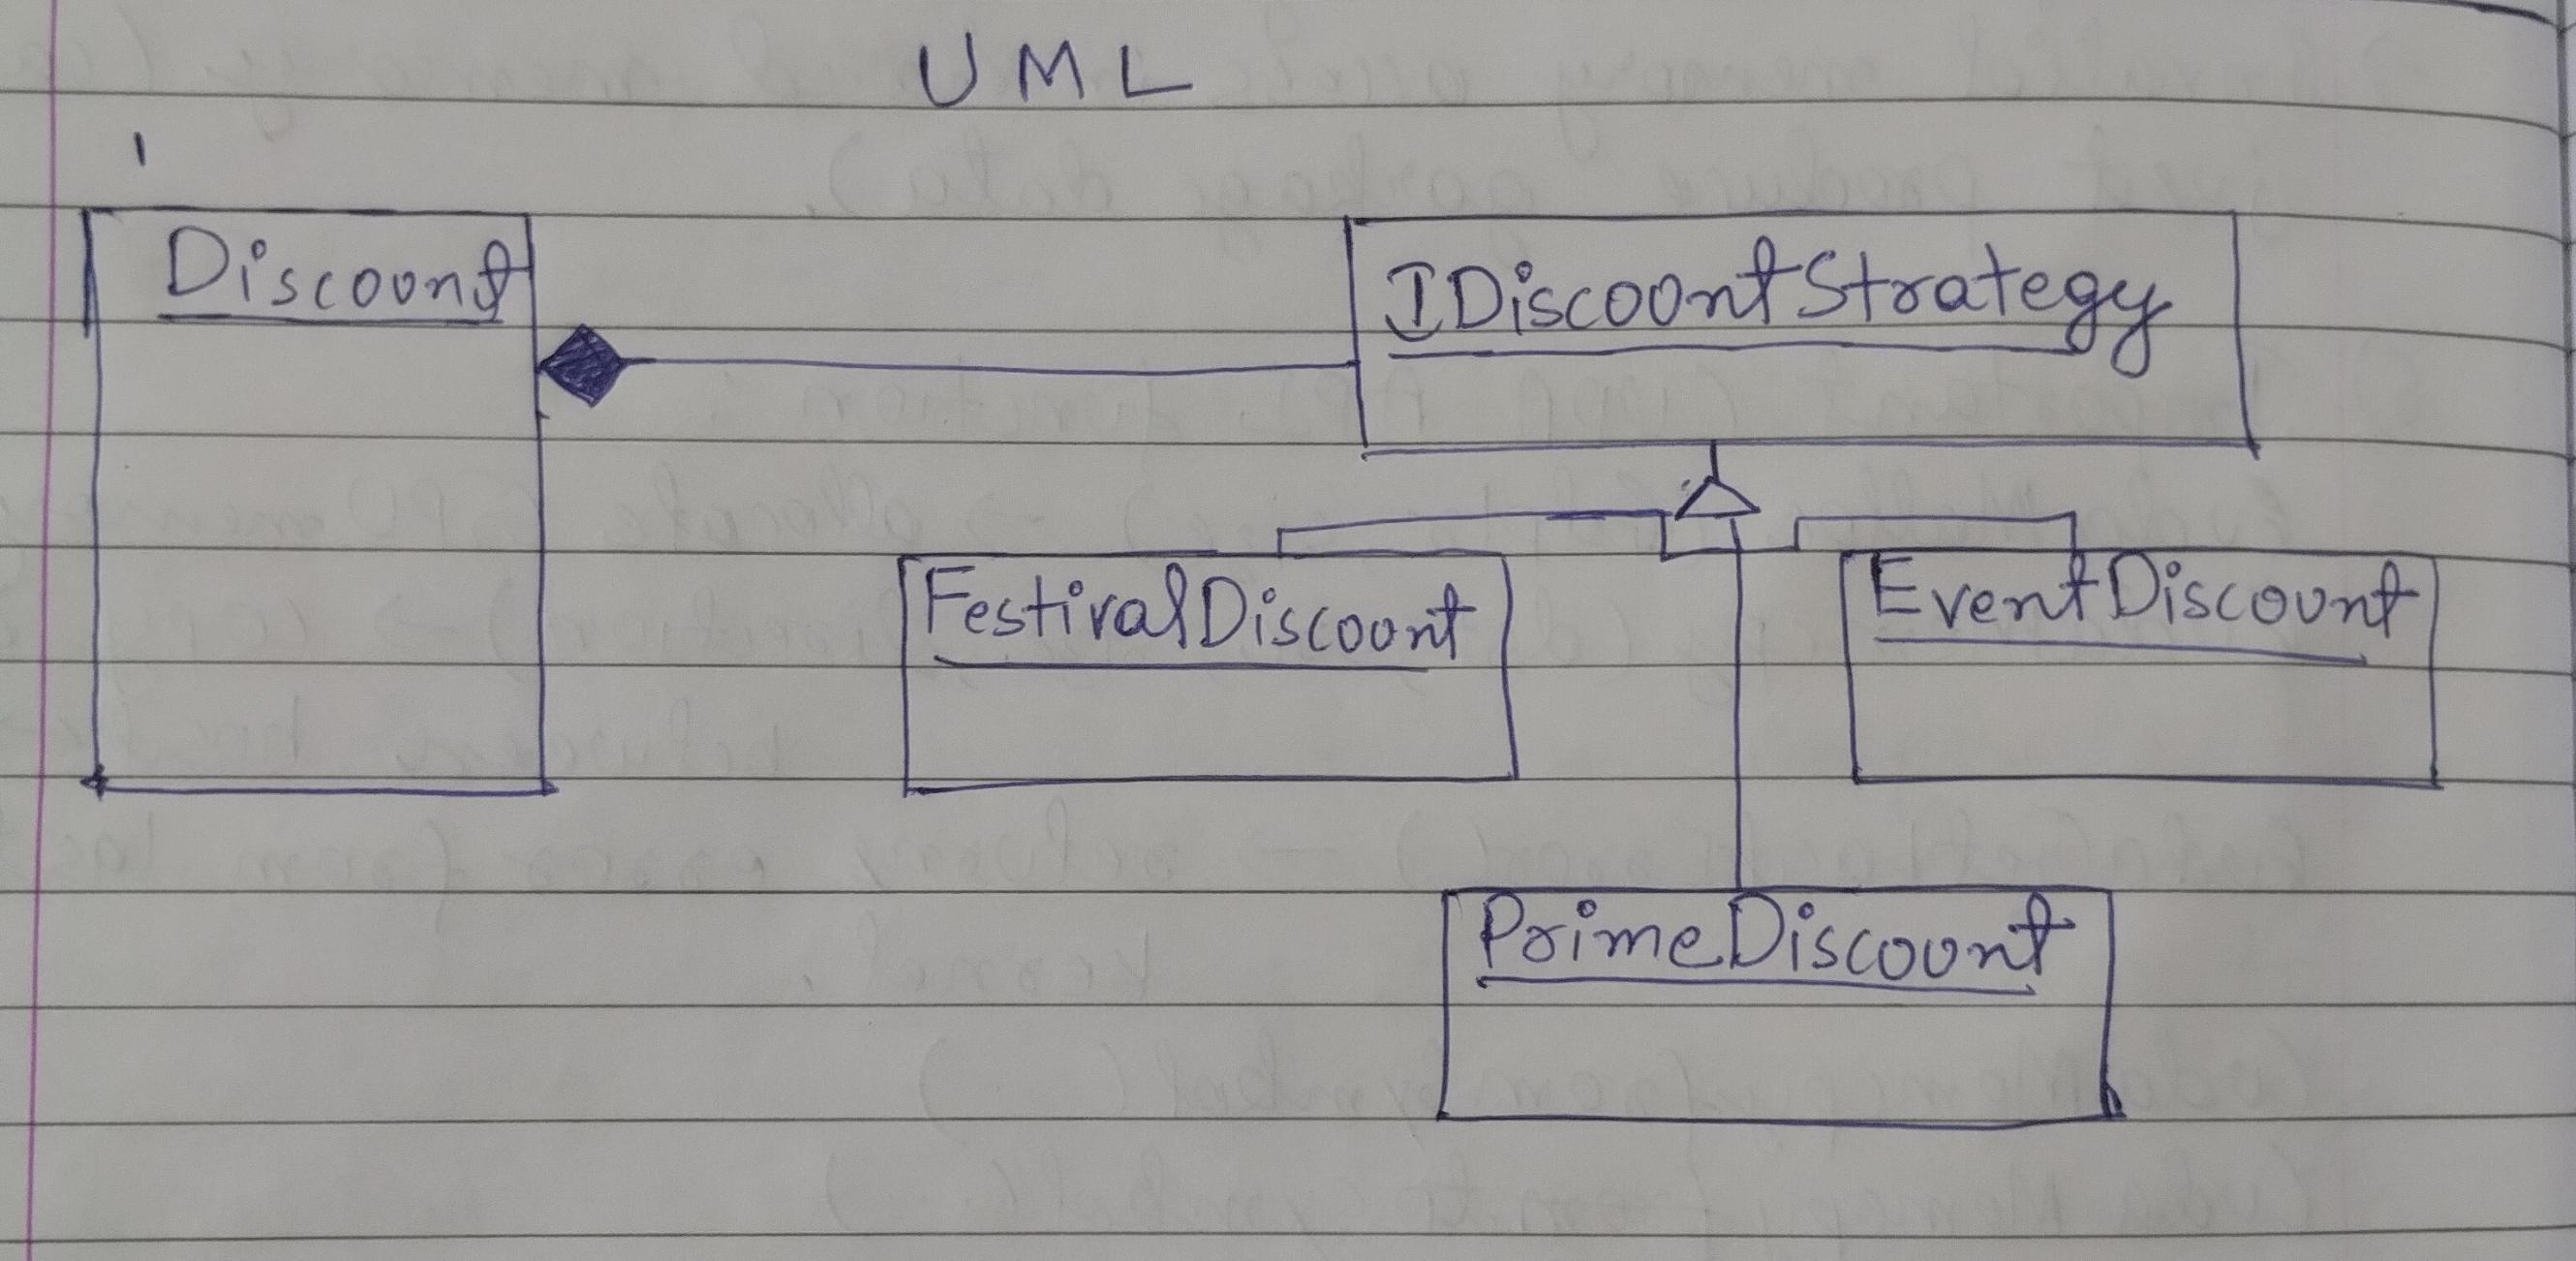 UML
Discount
IDiscountStrategy
FestivalDiscount
EventDiscount
PrimeDiscount